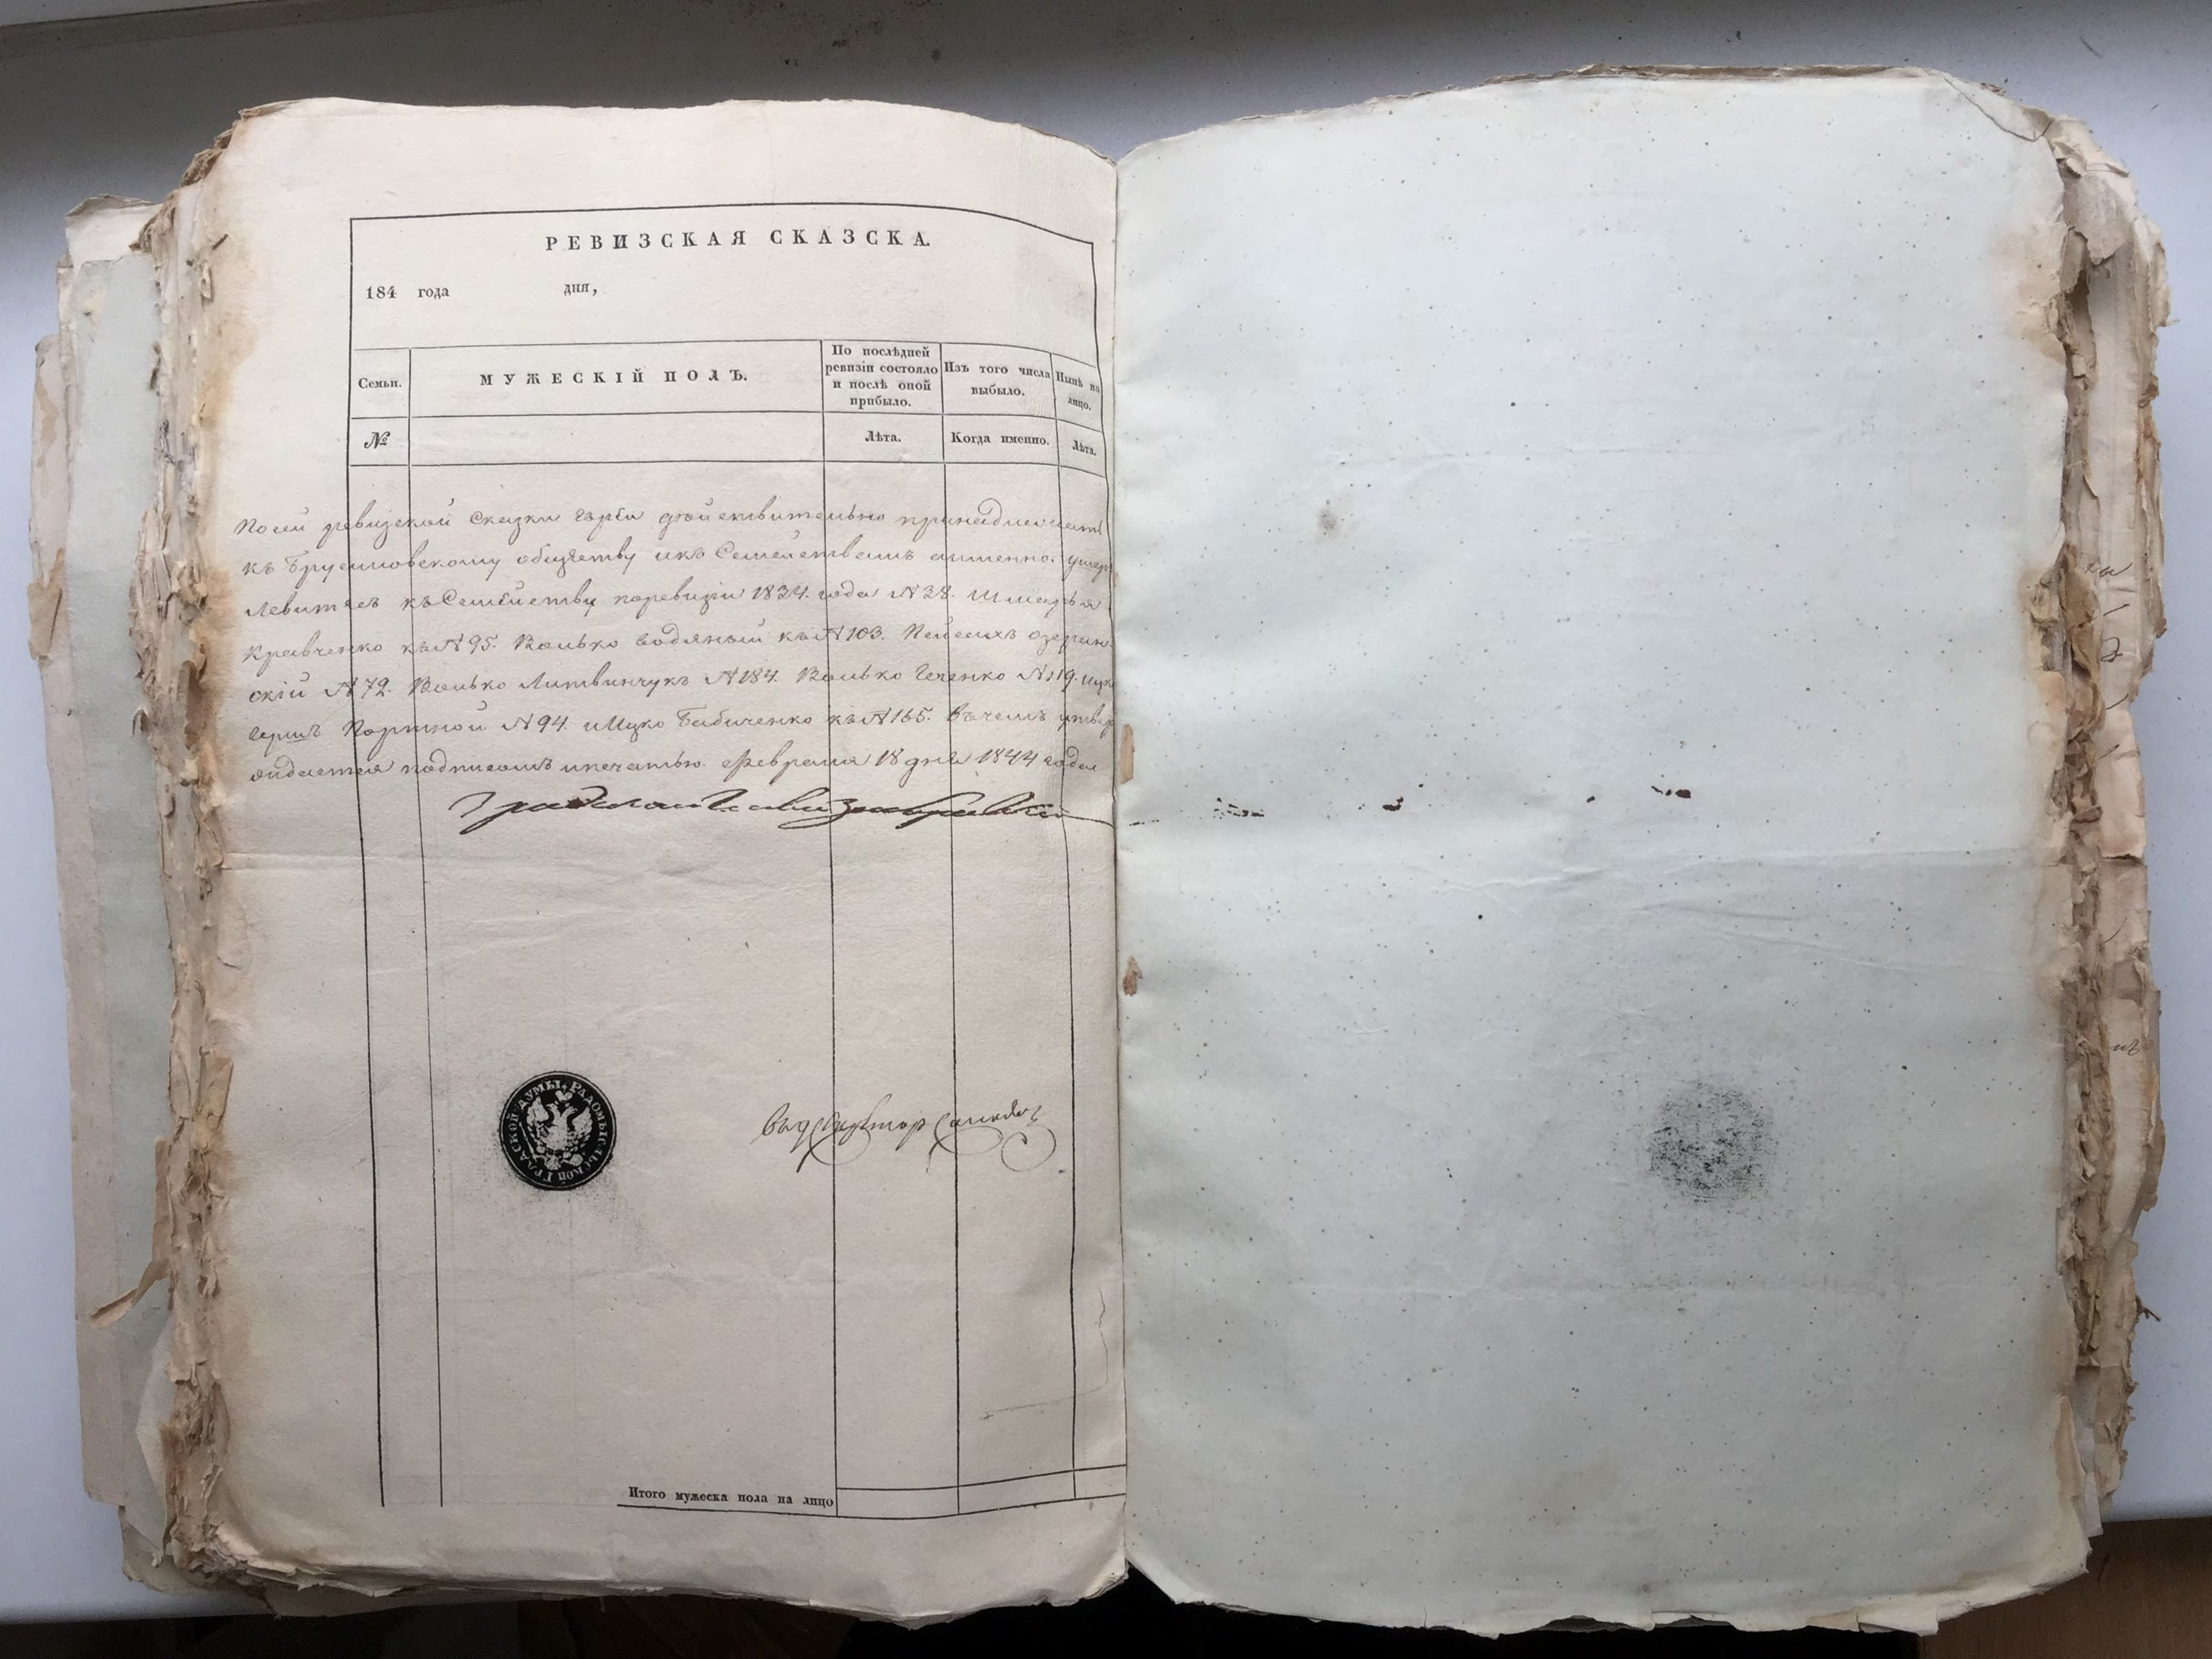 РЕВИЗСКАЯ СКАЗСКА.
184 года дня,
Семьи.
МУЖЕСКІЙ ПОЛЪ.
По послѣдней ревизіи состояло и послѣ оной прибыло.
Изъ того числа выбыло.
Нынѣ на лицо.
№
Лѣта.
Когда именно.
Лѣта.
Посей ревизской Сказки дѣйствительно принадлежатъ
къ Брусиловскому обществу икъ Семействамъ аименно:
Левитъ къ Семейству поревизіи 1834. года №38. Шмаръя
Кравченко къ №95. Волько водяный къ №103. Пейсахъ озерян
скій №72. Волько Литвинчукъ №184. Волько Геченко №119. Ицко
Портной №94. иИцко Бабиченко къ №165. Въчемъ утверж
дается подписомъ ипечатью. Февраля 18 дня 1844 года
РАДОМЫСЛЬСКОЙ ГРАДСКОЙ ДУМЫ
Итого мужеска пола на лицо